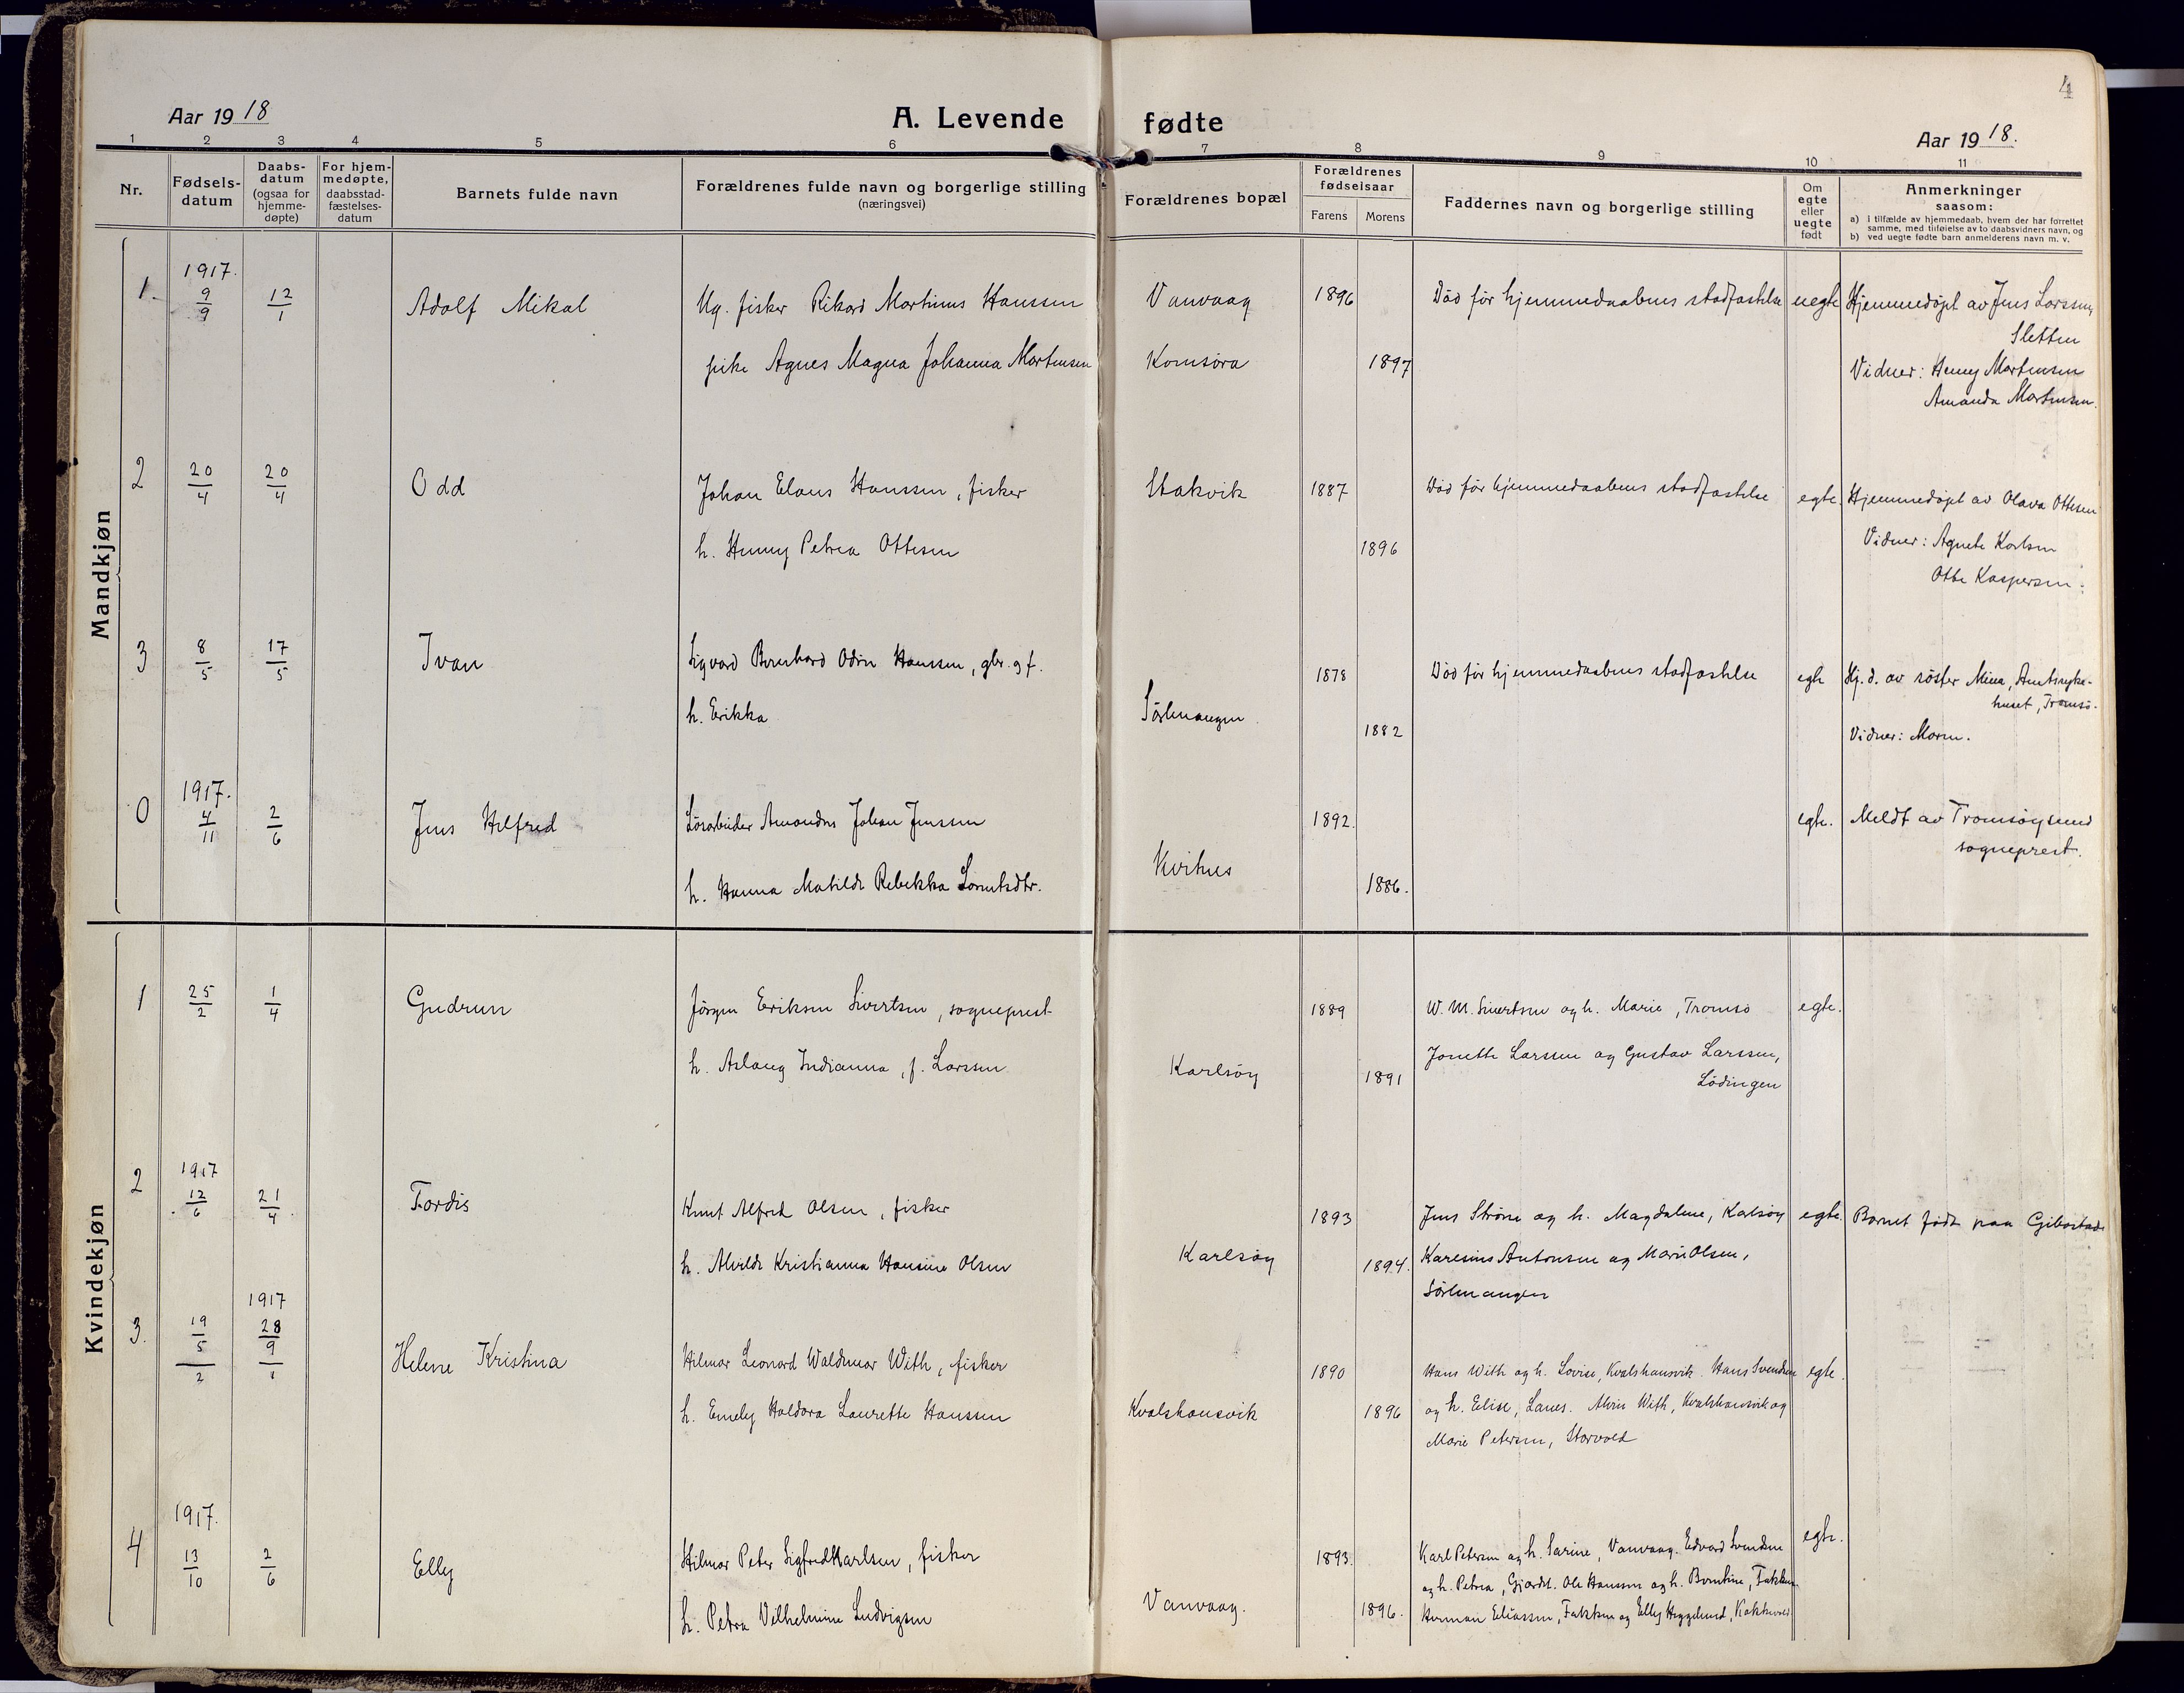 4
Aar 1918
A. Levende fødte
Aar 1918.
1 2 3 4 5 6 7 8 9 10 11
Nr.
Fødsels-
datum
Daabs-
datum
(ogsaa for
hjemme-
døpte)
For hjem-
medøpte,
daabsstad-
fæstelses-
datum
Barnets fulde navn
Forældrenes fulde navn og borgerlige stilling
(næringsvei)
Forældrenes bopæl
Forældrenes
fødselsaar
Farens Morens
Faddernes navn og borgerlige stilling
Om
egte
eller
uegte
født
Anmerkninger
saasom:
a) i tilfælde av hjemmedaab, hvem der har forrettet
samme, med tilføielse av to daabsvidners navn, og
b) ved uegte fødte barn anmelderens navn m. v.
Mandkjøn
1917.
1. 9/9 12/1 Adolf Mikal Ug. fisker Rikard Martinus Hanssen Vanvaag 1896 Död för hjemmedaabens stadfæstelse uegte Hjemmedöpt av Jens Larssen,
Sletten
pike Agnes Magna Johanna Martensen Komsöra 1897 Vidner: Henny Martensen
Amanda Martensen.
2 20/4 20/4 Odd Johan Elaus Hanssen, fisker Stakvik 1887 Död för hjemmedaabens stadfæstelse egte. Hjemmedöpt av Olava Ottesen
h. Henny Petrea Ottesen 1896 Vidner: Agnete Karlsen
Otte Kaspersen.
3 8/5 17/5 Ivan Sigvard Bernhard Odin Hanssen, gbr. og f. 1878 Död för hjemmedaabens stadfæstelse egte Hj. d. av söster Mina, Amtsyke-
huset, Tromsö.
h. Erikka Sörlenangen 1882 Vidner: Moren.
1917.
0 4/11 2/6 Jens Hilfred Lösarbeider Amandus Johan Jenssen 1892. egte. Meldt av Tromsöysund
sogneprest.
h. Hanna Matilde Rebekka Lorentsdtr. Kvitnes 1886.
Kvindekjøn
1 25/2 1/4 Gudrun Jörgen Eriksen Sivertsen, sogneprest 1889 W. M. Sivertsen og h. Marie, Tromsö egte.
h. Aslaug Indianna, f. Larssen Karlsöy 1891 Jonette Larssen og Gustav Larssen,
Lödingen
1917
2 12/6 21/4 Tordis Knut Alfred Olsen, fisker 1893 Jens Ströne og h. Magdalene, Karlsöy egte. Barnet födt paa Gibostad
h. Alvilde Kristianna Hansine Olsen Karlsöy 1894. Karesius Antonsen og Marie Olsen,
Sörlenangen
1917
3. 19/5/2 28/9/1 Helene Kristina Hilmar Leonard Waldemar With, fisker 1890 Hans With og h. Lovise, Kvalshausvik. Hans Svendsen egte.
h. Emely Haldora Laurette Hanssen Kvalshausvik 1896 og h. Elise, Lanes. Alvin With, Kvalshausvik og
Marie Petersen, Storvold
1917.
4 13/10 2/6 Elly Hilmar Peter Sigfred Karlsen, fisker 1893. Karl Petersen og h. Sarine, Vanvaag. Edvard Svendsen egte.
og h. Petrea, Gjördst. Ole Hanssen og h. Berntine, Fakken
h. Petra Vilhelmine Ludvigsen Vanvaag. 1896. Herman Eliassen, Fakken og Elly Heggelund,